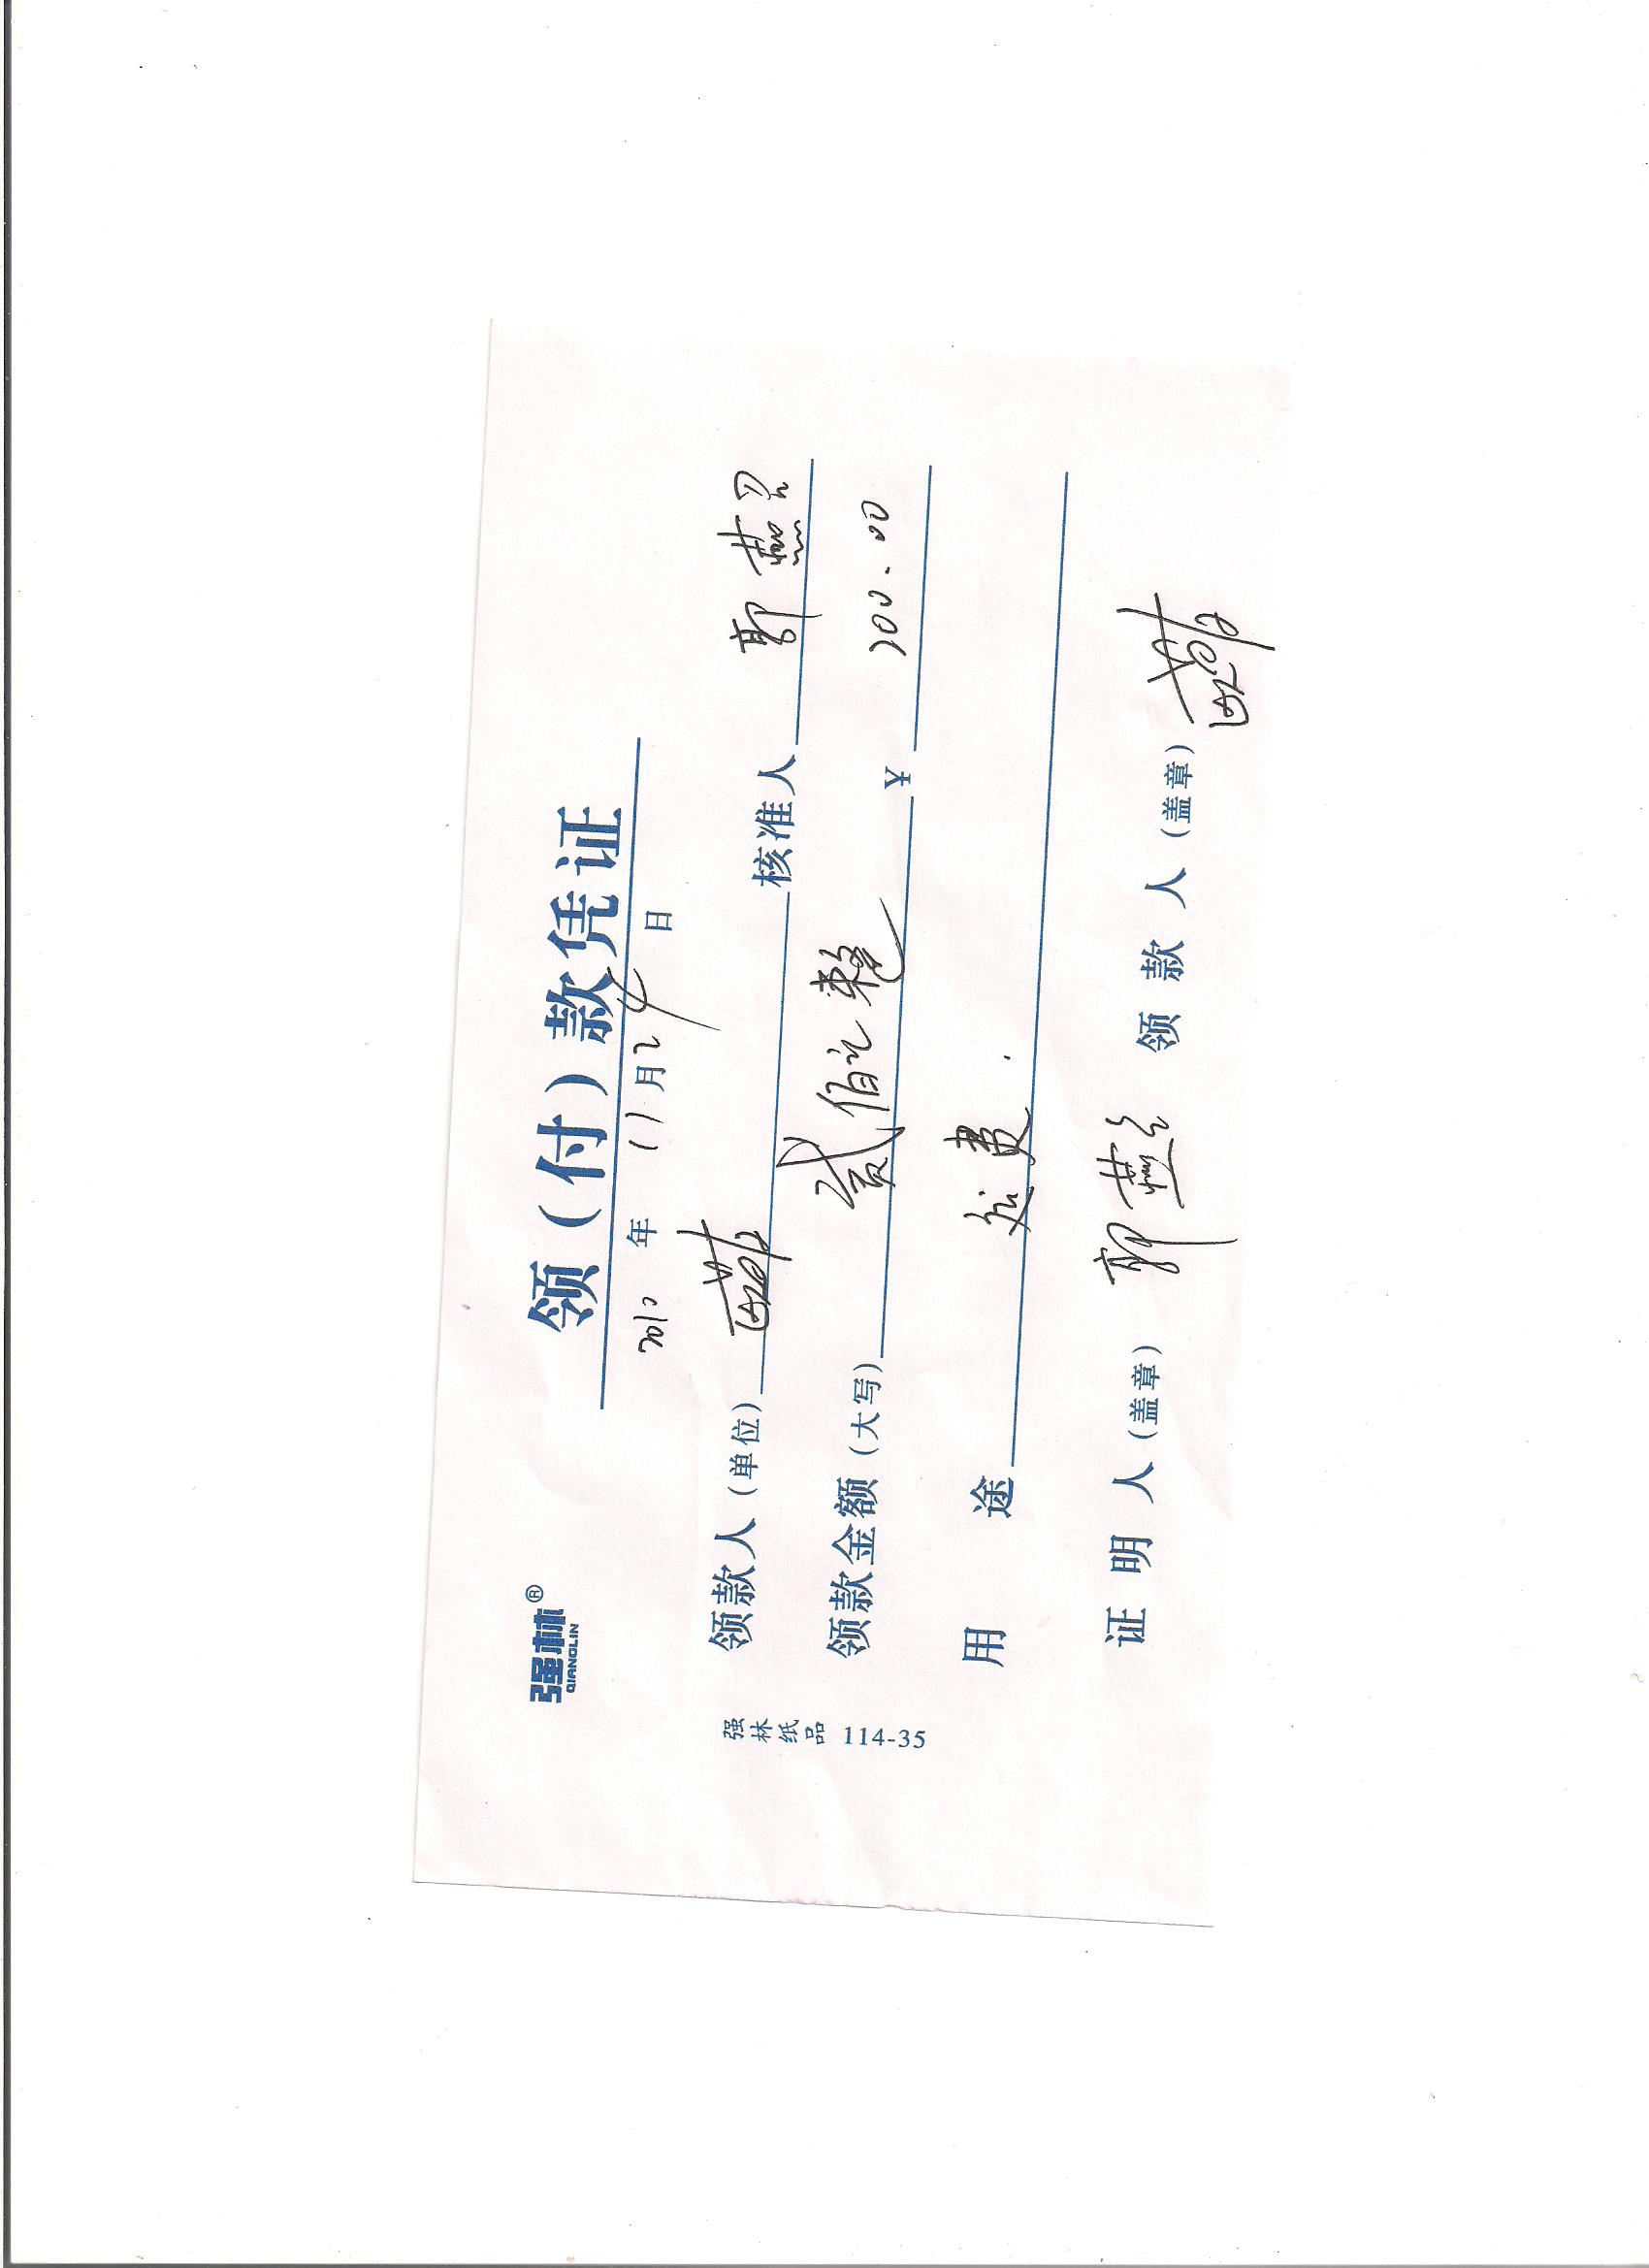 强林®
QIANGLIN
领（付）款凭证
2010 年 11 月 24 日
领款人（单位） 核准人 郭燕
领款金额（大写） 贰佰元整 ¥ 200.00
用 途 费
证 明 人（盖章） 郭燕 领 款 人（盖章）
强林纸品 114-35